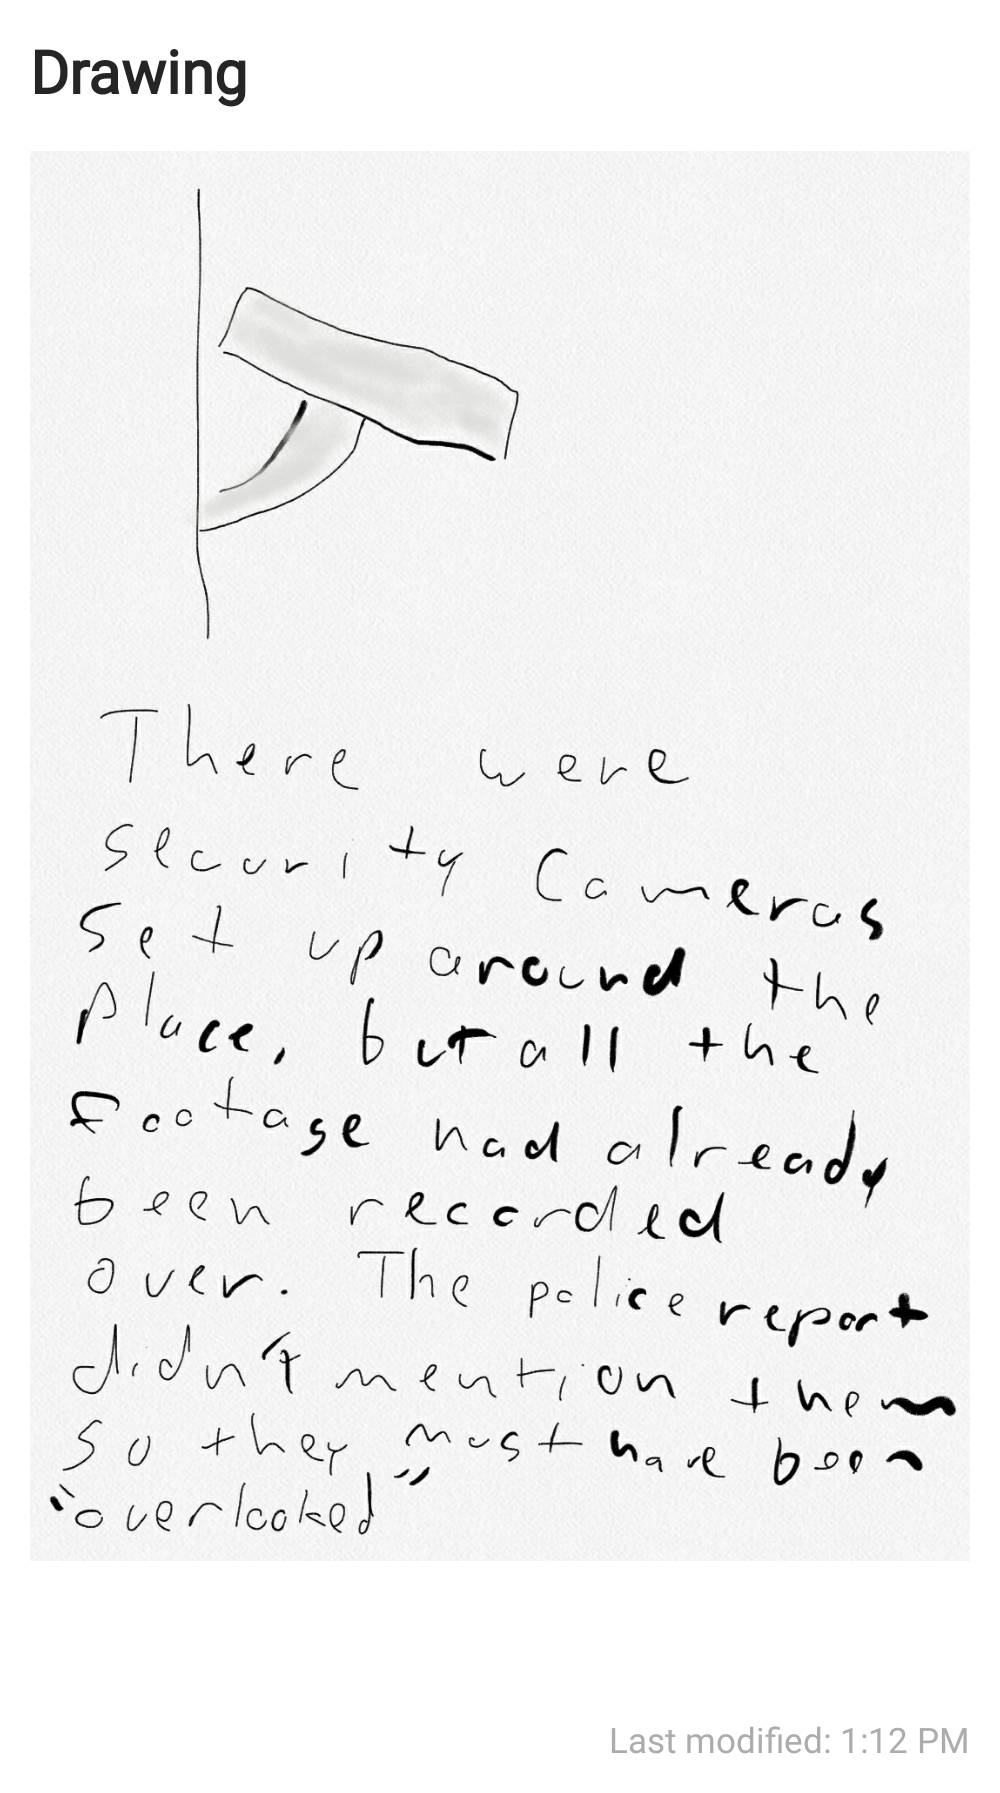 Drawing
There were
security Cameras
Set up around the
place, but all the
footage had already
been recorded
over. The police report
didn't mention them
so they must have been
"overlooked"
Last modified: 1:12 PM